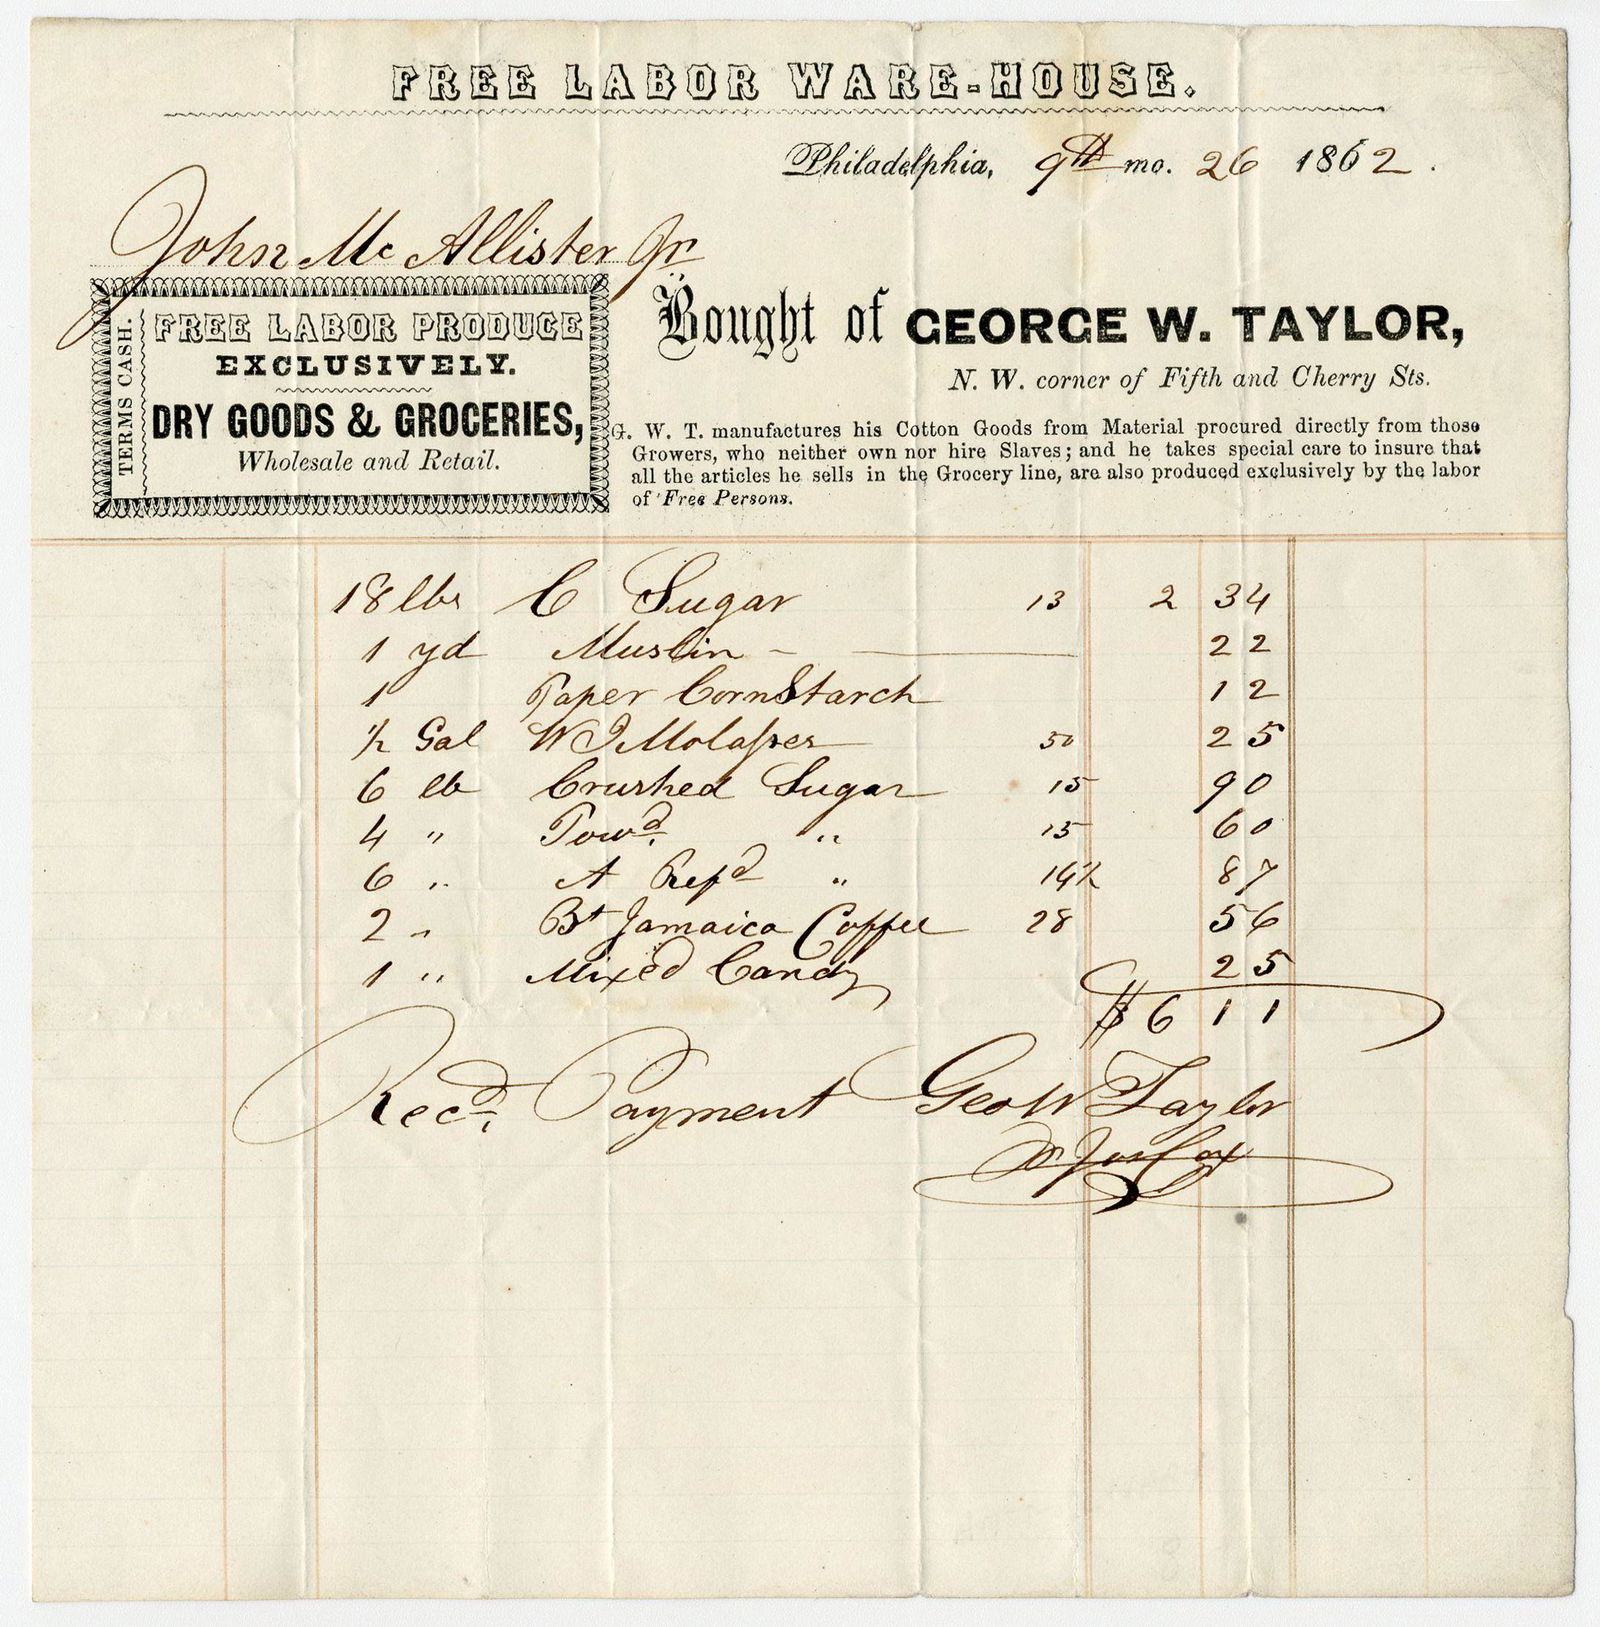 FREE LABOR WARE-HOUSE.
Philadelphia, 9th mo. 26 1862.
John McAllister Jr
TERMS CASH.
FREE LABOR PRODUCE
EXCLUSIVELY.
DRY GOODS & GROCERIES,
Wholesale and Retail.
Bought of GEORGE W. TAYLOR,
N. W. corner of Fifth and Cherry Sts.
G. W. T. manufactures his Cotton Goods from Material procured directly from those
Growers, who neither own nor hire Slaves; and he takes special care to insure that
all the articles he sells in the Grocery line, are also produced exclusively by the labor
of Free Persons.
18 lbs C Sugar 13 2 34
1 yd Muslin - 22
1 Paper CornStarch 12
1/2 Gal W I Molasses 50 25
6 lb Crushed Sugar 15 90
4 " Powd. " 15 60
6 " A Refd " 14½ 87
2 " Bt Jamaica Coffee 28 56
1 " Mixed Candy 25
$6 11
Recd. Payment Geo W Taylor